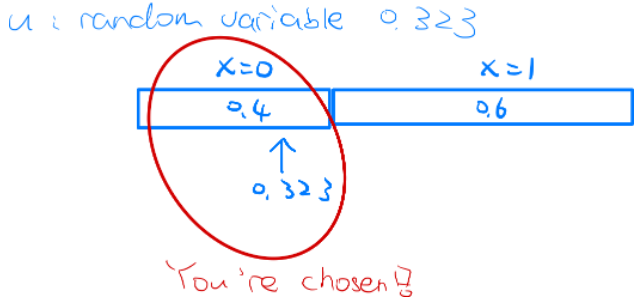 u : random variable 0.323
x=0 x=1
0.4 0.6
0.323
You're chosen!!